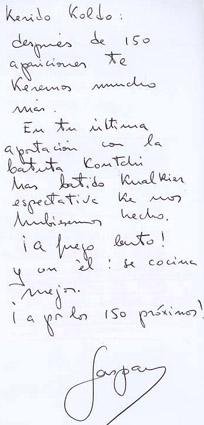 Kerido Koldo:
después de 150
apariciones te
Keremos mucho
más.
En tu última
aportación con la
batuta Koutchi
has batido Kualkier
espectativa Ke nos
hubiésemos hecho.
¡a fuego lento!
y con él: se cocina
mejor.
¡a por los 150 próximos!
Gaspar